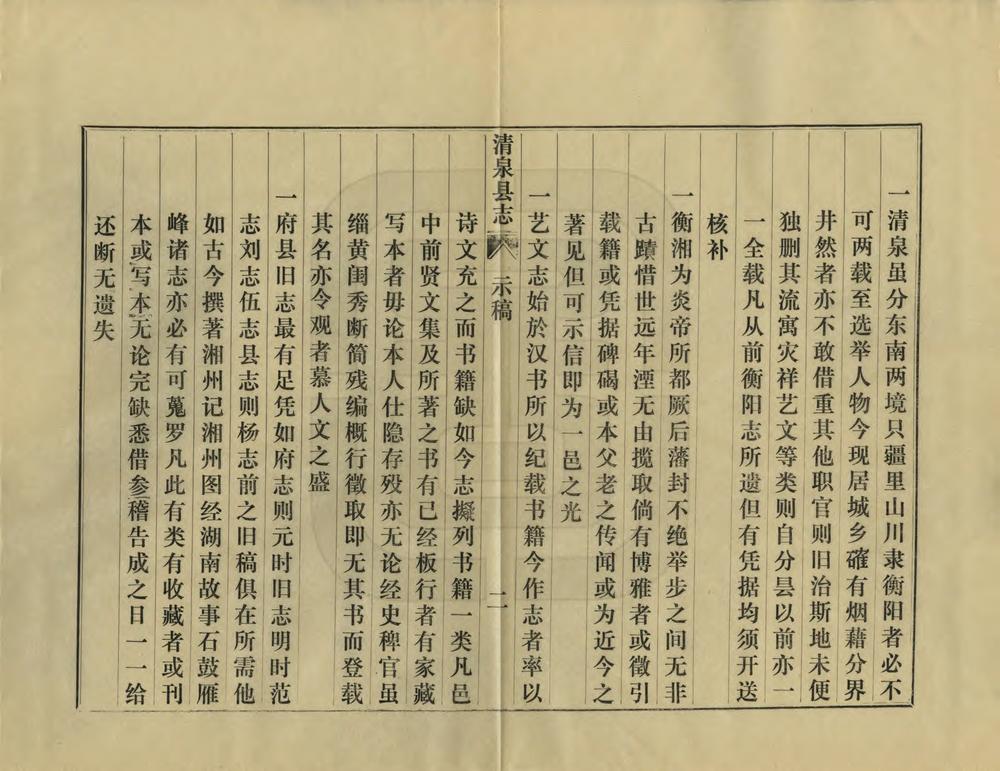 一清泉虽分东南两境只疆里山川隶衡阳者必不
可两载至选举人物今现居城乡確有烟藉分界
井然者亦不敢借重其他职官则旧治斯地未便
独删其流寓灾祥艺文等类则自分昙以前亦一
一全载凡从前衡阳志所遗但有凭据均须开送
核补
一衡湘为炎帝所都厥后藩封不绝举步之间无非
古蹟惜世远年湮无由揽取倘有博雅者或徵引
载籍或凭据碑碣或本父老之传闻或为近今之
著见但可示信即为一邑之光
一艺文志始於汉书所以纪载书籍今作志者率以
清泉县志
示稿
二
诗文充之而书籍缺如今志擬列书籍一类凡邑
中前贤文集及所著之书有已经板行者有家藏
写本者毋论本人仕隐存殁亦无论经史稗官虽
缁黄闺秀断简残编概行徵取即无其书而登载
其名亦令观者慕人文之盛
一府县旧志最有足凭如府志则元时旧志明时范
志刘志伍志县志则杨志前之旧稿俱在所需他
如古今撰著湘州记湘州图经湖南故事石鼓雁
峰诸志亦必有可蒐罗凡此有类有收藏者或刊
本或写本无论完缺悉借参稽告成之日一一给
还断无遗失